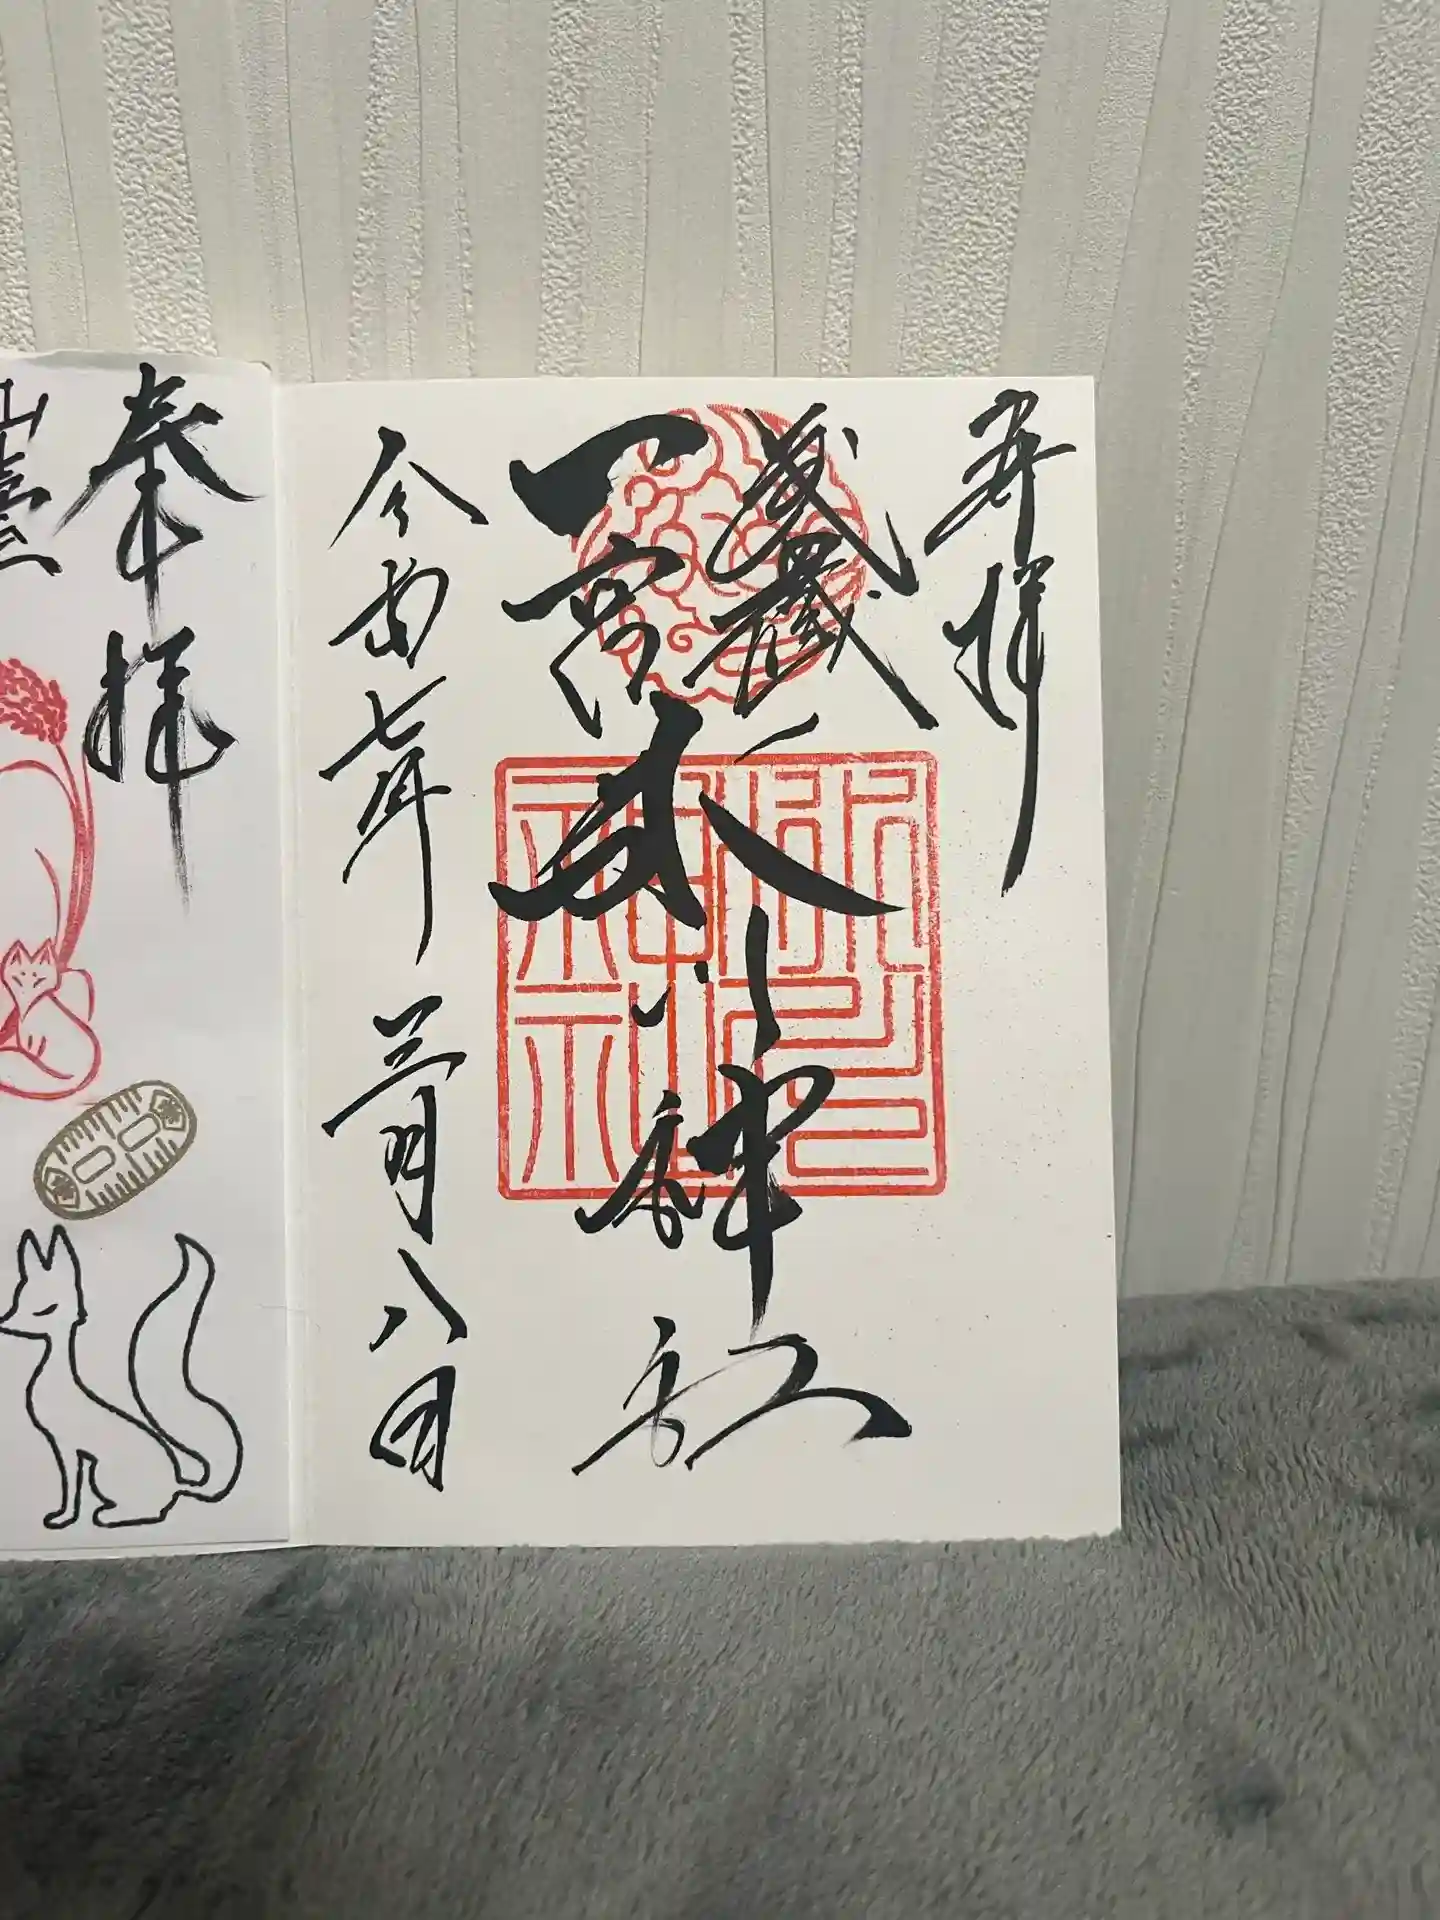 奉拝
武蔵
一宮
氷川神社
令和七年三月八日
奉拝